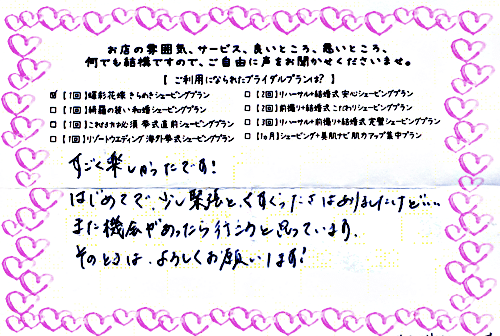 お店の雰囲気、サービス、良いところ、悪いところ、
何でも結構ですので、ご自由に声をお聞かせくださいませ。
【 ご利用になられたブライダルプランは? 】
☑【1回】曜彩花嫁 きらめきシェービングプラン
□【2回】リハーサル+結婚式 安心シェービングプラン
□【1回】綺羅の装い和婚シェービングプラン
□【2回】前撮り+結婚式 こだわりシェービングプラン
□【1回】これは必須 挙式直前シェービングプラン
□【3回】リハーサル+前撮り+結婚式 完璧シェービングプラン
□【1回】リゾートウエディング 海外挙式シェービングプラン
□【1ヶ月】シェービング+美肌ナビ 肌力アップ集中プラン
すごく楽しかったです!
はじめてで、少し緊張と、くすぐったさはありましたけど…
また機会があったら行こうと思っています。
そのときは、よろしくお願いします!